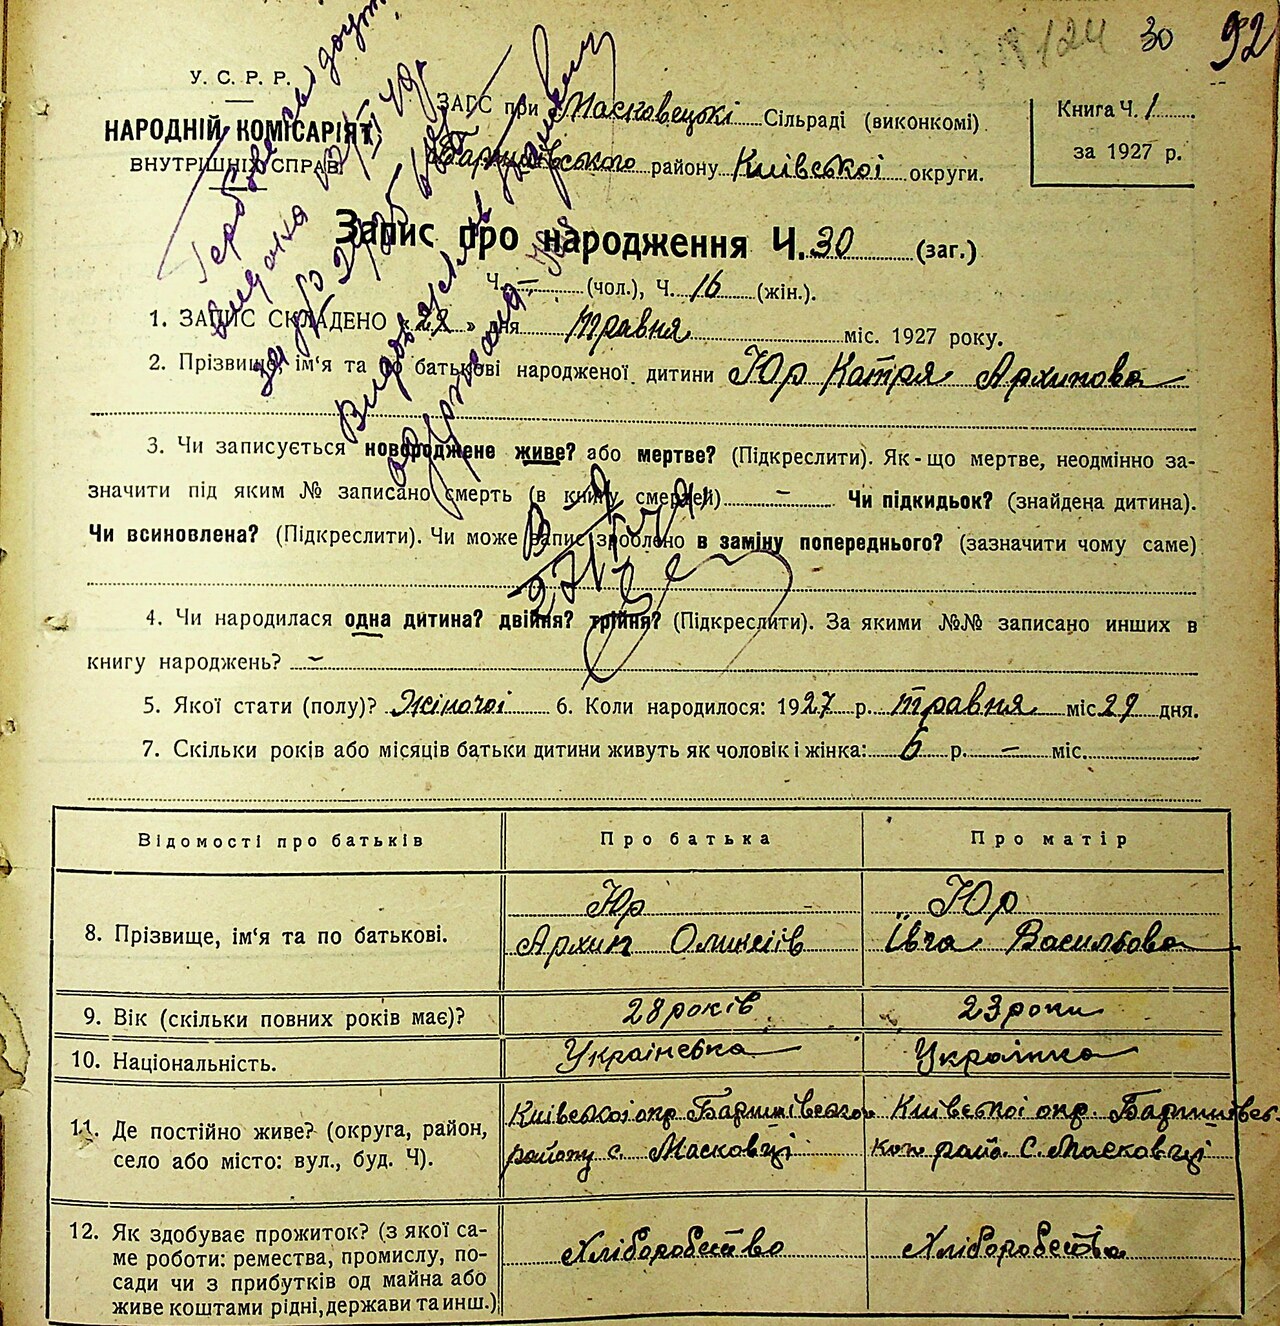 № 124 30 92
У. С. Р. Р.
НАРОДНІЙ КОМІСАРІЯТ
ВНУТРІШНІХ СПРАВ
ЗАГС при Масковецькі Сільраді (виконкомі)
Баришівського району Київської округи.
Книга Ч. 1
за 1927 р.
Запис про народження Ч. 30 (заг.)
Ч. – (чол.), Ч. 16 (жін.).
1. ЗАПИС СКЛАДЕНО «29» дня травня міс. 1927 року.
2. Прізвище, ім'я та по батькові народженої дитини Юр Катря Архипова
3. Чи записується новороджене живе? або мертве? (Підкреслити). Як-що мертве, неодмінно за-
значити під яким № записано смерть (в книгу смертей) – Чи підкидьок? (знайдена дитина).
Чи всиновлена? (Підкреслити). Чи може запис зроблено в заміну попереднього? (зазначити чому саме)
4. Чи народилася одна дитина? двійня? трійня? (Підкреслити). За якими №№ записано инших в
книгу народжень? –
5. Якої стати (полу)? Жіночої 6. Коли народилося: 1927 р. травня міс 29 дня.
7. Скільки років або місяців батьки дитини живуть як чоловік і жінка: 6 р. – міс.
Відомості про батьків Про батька Про матір
8. Прізвище, ім'я та по батькові.
Юр
Архип Оликсіїв
Юр
Ївга Васильова
9. Вік (скільки повних років має)? 28 років 23 роки
10. Національність. Українська Українка
11. Де постійно живе? (округа, район,
село або місто: вул., буд. Ч).
Київської окр. Баришівського
району с. Масковці
Київської окр. Баришівсь-
кого райо. С. Масковці
12. Як здобуває прожиток? (з якої са-
ме роботи: ремества, промислу, по-
сади чи з прибутків од майна або
живе коштами рідні, держави та инш.)
Хліборобство
Хліборобства